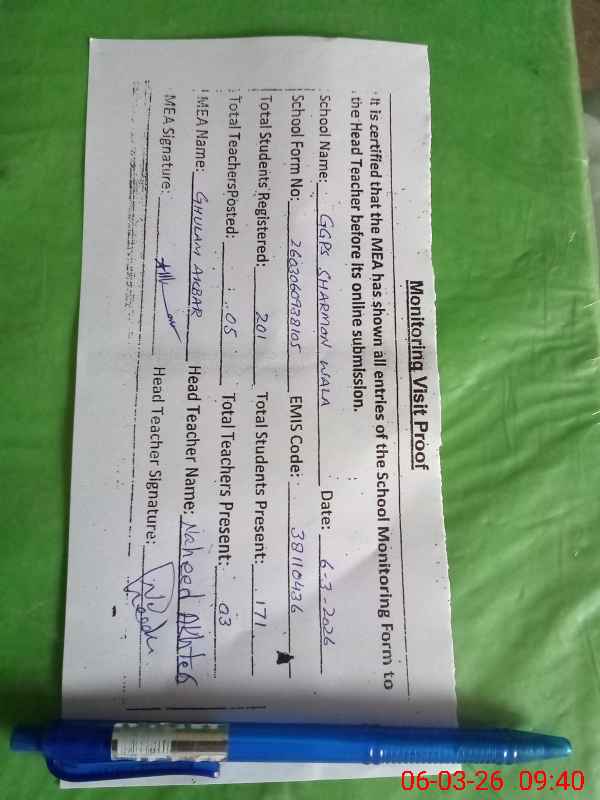 Monitoring Visit Proof
It is certified that the MEA has shown all entries of the School Monitoring Form to
the Head Teacher before its online submission.
School Name: GGPS SHARMON WALA Date: 6-3-2026
School Form No: 2603060938105 EMIS Code: 38110436
Total Students Registered: 201 Total Students Present: 171
Total Teachers Posted: 05 Total Teachers Present: 03
MEA Name: GHULAM AKBAR Head Teacher Name: Naheed Akhter
MEA Signature: Head Teacher Signature:
06-03-26 09:40